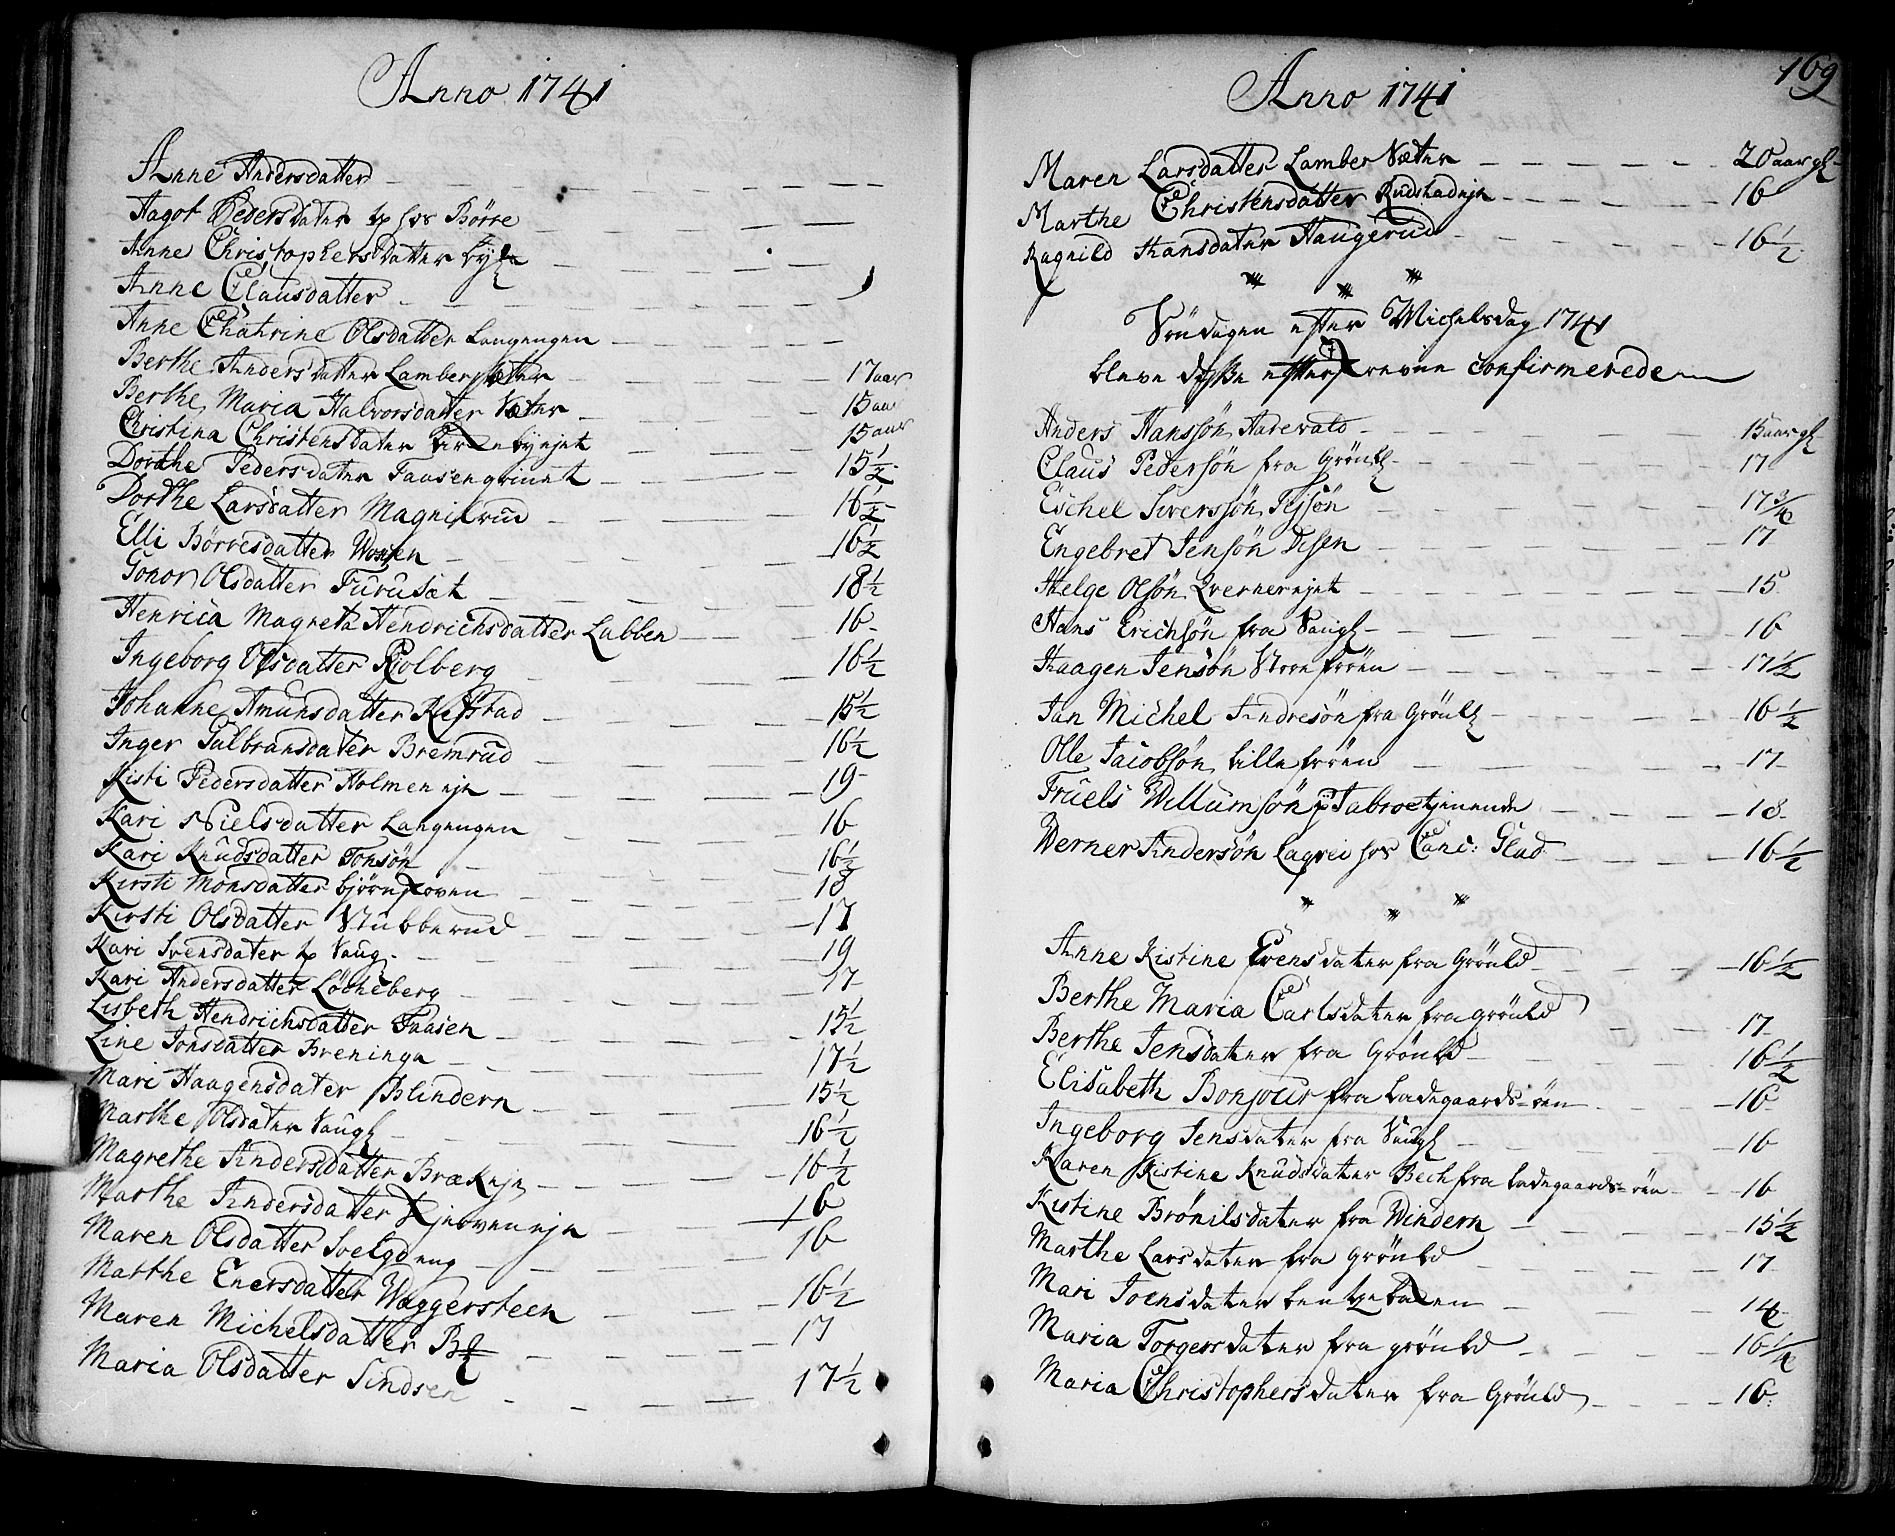 Anno 1741
Anne Andersdatter
Aagot Pedersdater hos Börre
Anne Christophersdatter
Anne Clausdatter
Anne Chathrine Olsdatter Langengen
Berthe Andersdatter Lambersæter 17 aar
Berthe Maria Halvorsdatter Sæter 15 aar
Christina Christensdater 15 aar
Dorthe Pedersdater 15 1/2
Dorthe Larsdatter 16 1/2
Elli Börresdatter 16 1/2
Gonor Olsdatter Furusæt 18 1/2
Henrica Magreta Hendrichsdatter Labben 16
Ingeborg Olsdatter Kolberg 16 1/2
Johanne Amunsdatter Refstad 15 1/2
Inger Gulbransdater Bremrud 16 1/2
Kisti Pedersdatter Holmen eje 19
Kari Nielsdatter Langengen 16
Kari Knudsdatter Tonsön 16 1/2
Kirsti Monsdatter Björnskoven 18
Kirsti Olsdatter Stubberud 17
Kari Svensdater Saug 19
Kari Andersdatter Löcheberg 17
Lisbeth Hendrichsdatter Taasen 15 1/2
Line Jonsdatter Breninga 17 1/2
Mari Haagensdater Blindern 15 1/2
Marthe Olsdater Saug 16 1/2
Magrethe Andersdatter Bræk eje 16 1/2
Marthe Andersdatter 16
Maren Olsdatter Svelgdeng 16
Marthe Enersdatter Wæggersteen 16 1/2
Maren Michelsdatter 17
Maria Olsdatter Sindsen 17 1/2
Anno 1741
169
Maren Larsdatter Lamber Sæter 20 aar
Marthe Christensdatter Rudstad eje 16
Ragnild Hansdater Haugerud 16 1/2
Söndagen efter Michelsdag 1741
bleve disse efterskrevne confirmerede
Anders Hanssön Aarevold 15 aar
Claus Pedersön fra Grönl 17
Eschel Siverssön Tejsön 17 3/4
Engebret Jensön Disen 17
Helge Olsön Qverner ejet 15
Hans Erichsön fra Saug 16
Haagen Jensön Store frön 17 1/2
Jan Michel Andresön fra Grönl 16 1/2
Olle Jacobsön Lille frön 17
Truels Willumsön 18
Werner Andersön Laqvei hos Canc: Glad 16 1/2
Anne Kistine Evensdater fra Grönld 16 1/2
Berthe Maria Carlsdater fra grönld 17
Berthe Jensdater fra Grönld 16 1/2
Elisabeth Bonjour fra Ladegaards-öen 16
Ingeborg Jensdater fra Saug 16
Karen Kistine Knudsdater Bech fra Ladegaards-öen 16
Kistine Brönilsdater fra Windern 15 1/2
Marthe Larsdater fra grönld 17
Mari Joensdater Bentzebakken 14
Maria Torgersdater fra grönld 16 1/4
Maria Christophersdater fra Grönld 16